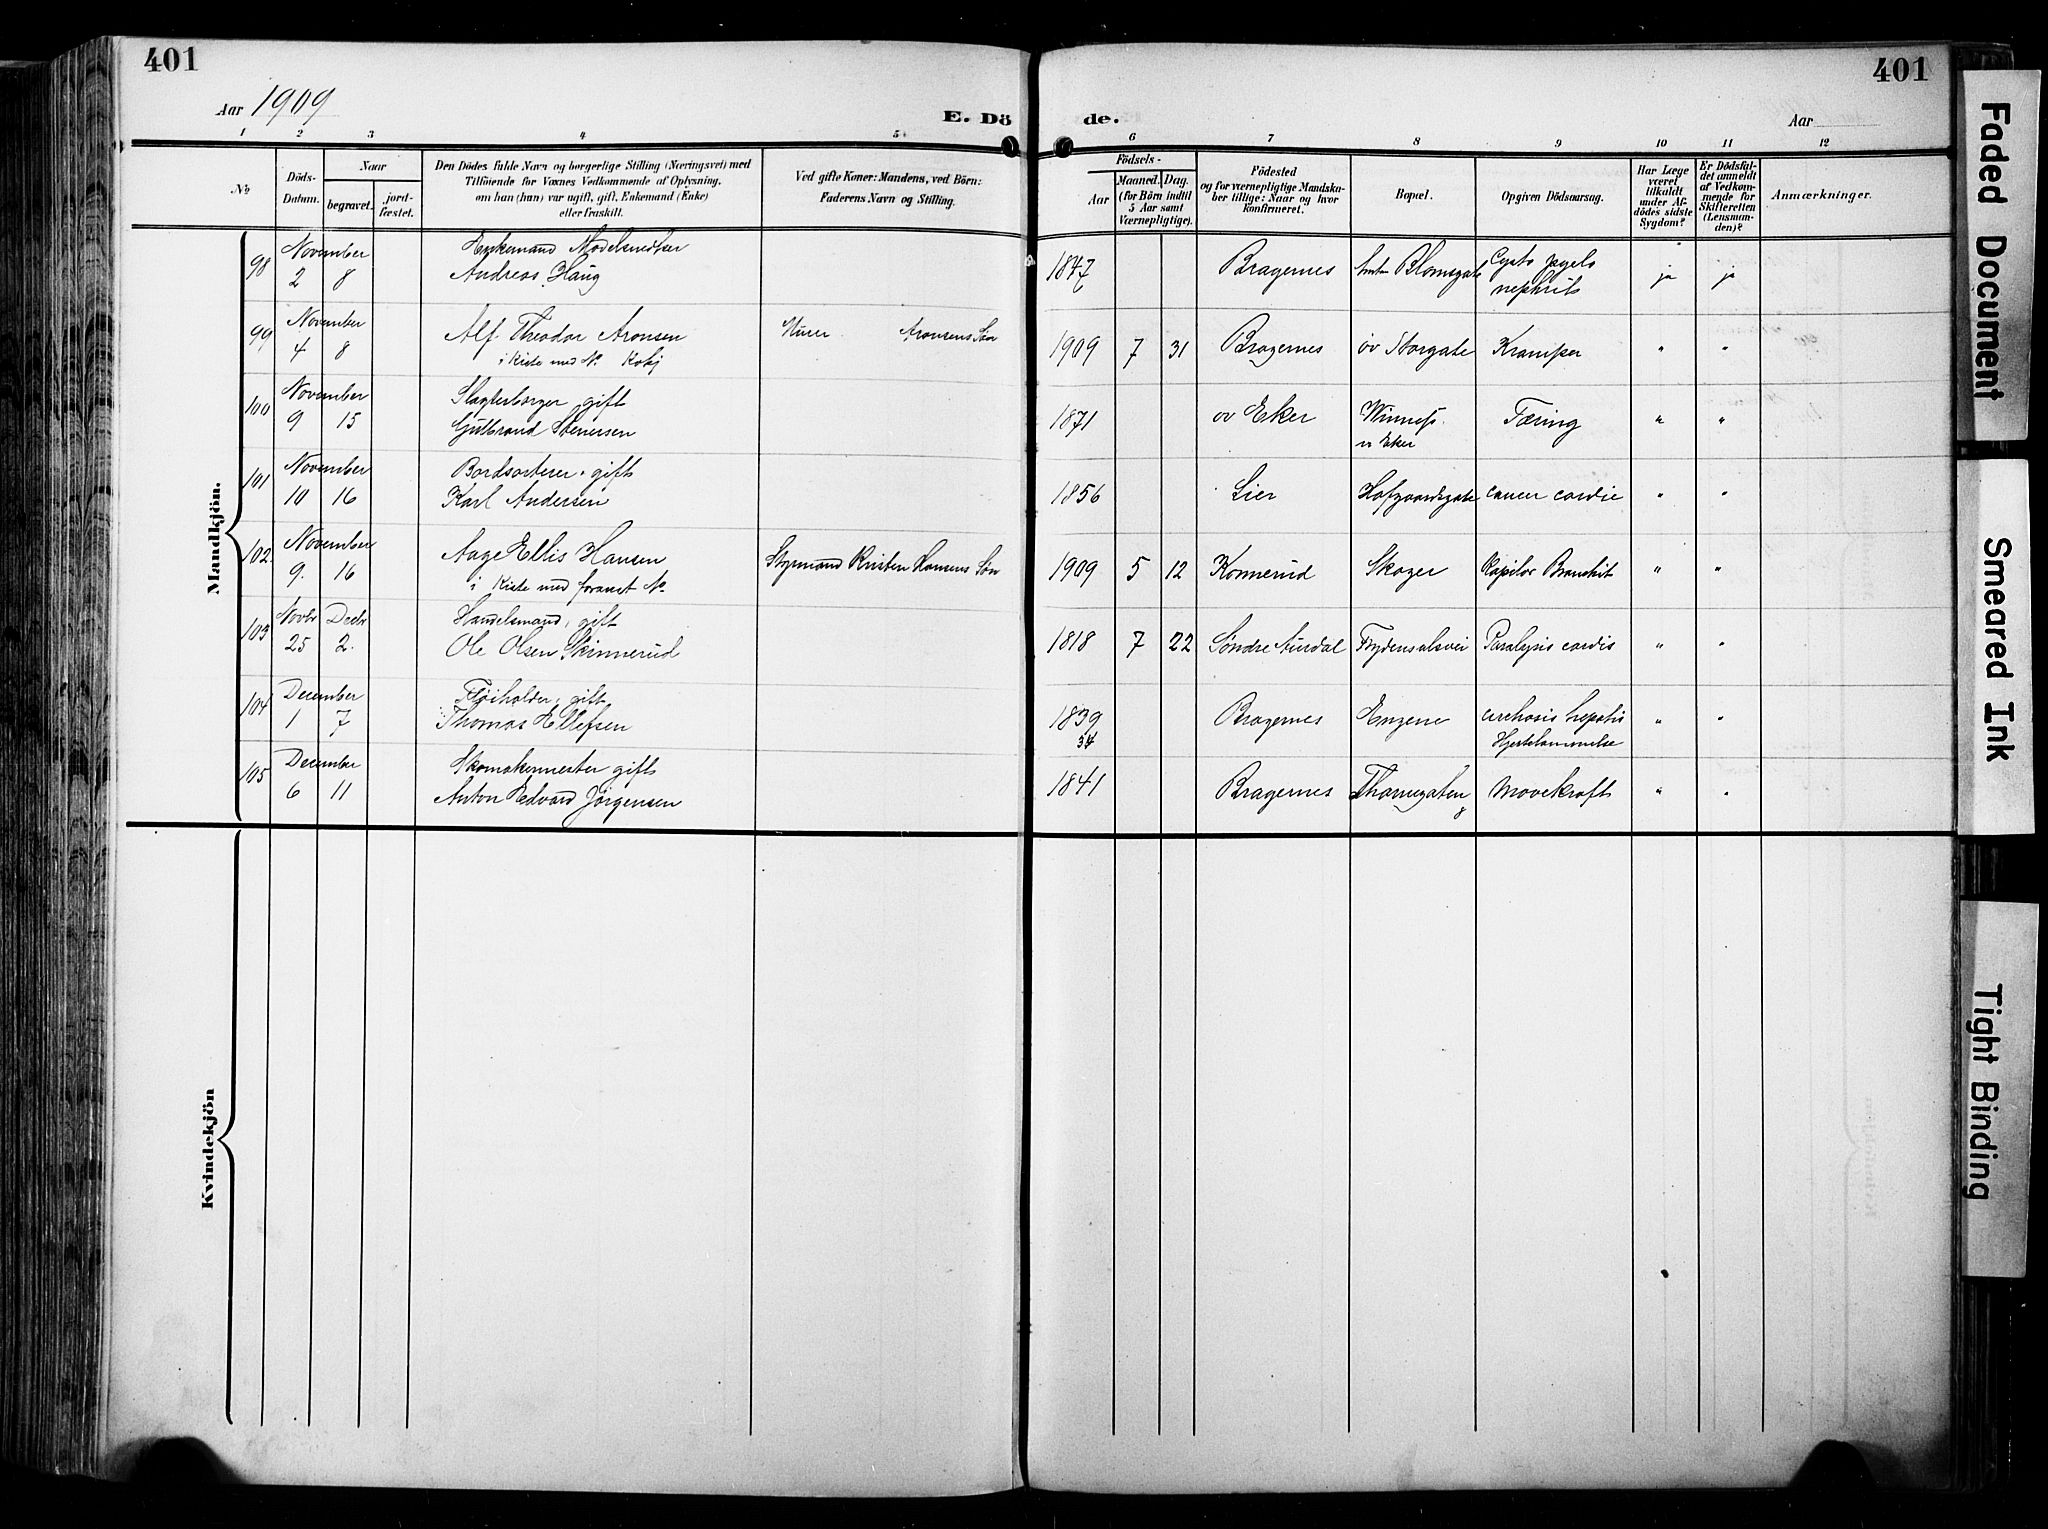 401
401
Aar 1909
E. Dö de.
Aar
1 2 3 4 5 6 7 8 9 10 11 12
No
Döds-Datum.
Naar
begravet.
jordfæstet.
Den Dödes fulde Navn og borgerlige Stilling (Næringsvei) med
Tilföiende for Voxnes Vedkommende af Oplysning,
om han (hun) var ugift, gift, Enkemand (Enke)
eller fraskilt.
Ved gifte Koner: Mandens, ved Börn:
Faderens Navn og Stilling.
Födsels-
Aar
Maaned. Dag.
(for Börn indtil
5 Aar samt
Værnepligtige).
Födested
og for værnepligtige Mandskaber
tillige: Naar og hvor
konfirmeret.
Bopæl.
Opgiven Dödsaarsag.
Har Læge
været
tilkaldt
under Afdödes
sidste
Sygdom?
Er Dödsfaldet
anmeldt
af Vedkommende
for
Skifteretten
(Lensmanden)?
Anmærkninger.
Mandkjön.
98 November Enkemand Modelsnedker
2 8 Andreas Haug 1847 Bragernes Blomsgate Cysto pyelo nephrit ja ja
6
99 November Alf Theodor Aronsen Murer Aronsens Søn
4 8 i Kiste med No 1909 7 31 Bragernes øv Storgate Kramper " "
100 November Slagterborger, gift
9 15 Gulbrand Stenersen 1871 øv Eker Eker Tæring " "
101 November Bordsorterer, gift
10 16 Karl Andersen 1856 Lier Hofgaardsgate cancer cardie " "
102. November Aage Ellis Hansen Styrmand Kristen Hansens Søn
9. 16 i Kiste med forannet No 1909 5 12 Konnerud Skoger Kapilær Bronchit " "
103 Novbr Decbr Handelsmand, gift
25 2. Ole Olsen Skinnerud 1818 7 22 Søndre Aurdal Frydensalsvei Paralysis cordis " "
104 December Føiholder, gift
1 7 Thomas Ellefsen 1839 Bragernes Engene cirrhosis hepatis " "
34 Hjertelammelse
105 December Skomakermester gift
6 11 Anton Edvard Jörgensen 1841 Bragernes Thornegaten Mavekræft " "
8
Kvindekjön
Faded Document
Smeared Ink
Tight Binding